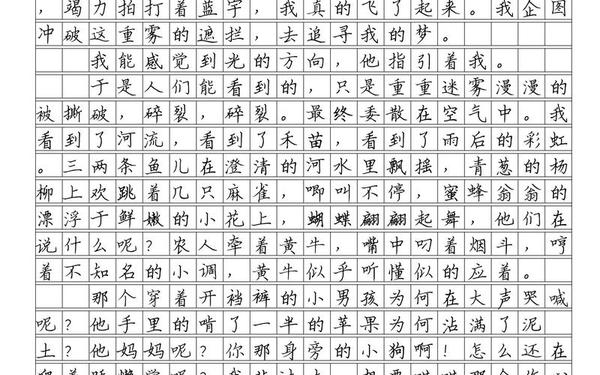 ，竭力拍打着蓝宇，我真的飞了起来。我企图
冲破这重雾的遮拦，去追寻我的梦。
我能感觉到光的方向，他指引着我。
于是人们能看到的，只是重重迷雾漫漫的
被撕破，碎裂，碎裂。最终委散在空气中。我
看到了河流，看到了禾苗，看到了雨后的彩虹
。三两条鱼儿在澄清的河水里飘摇，青葱的杨
柳上欢跳着几只麻雀，唧叫不停，蜜蜂翁翁的
漂浮于鲜嫩的小花上，蝴蝶翩翩起舞，他们在
说什么呢？农人牵着黄牛，嘴中叼着烟斗，哼
着不知名的小调，黄牛似乎听懂似的应着。
那个穿着开裆裤的小男孩为何在大声哭喊
呢？他手里的啃了一半的苹果为何沾满了泥
土？他妈妈呢？你那身旁的小狗啊！怎么还在